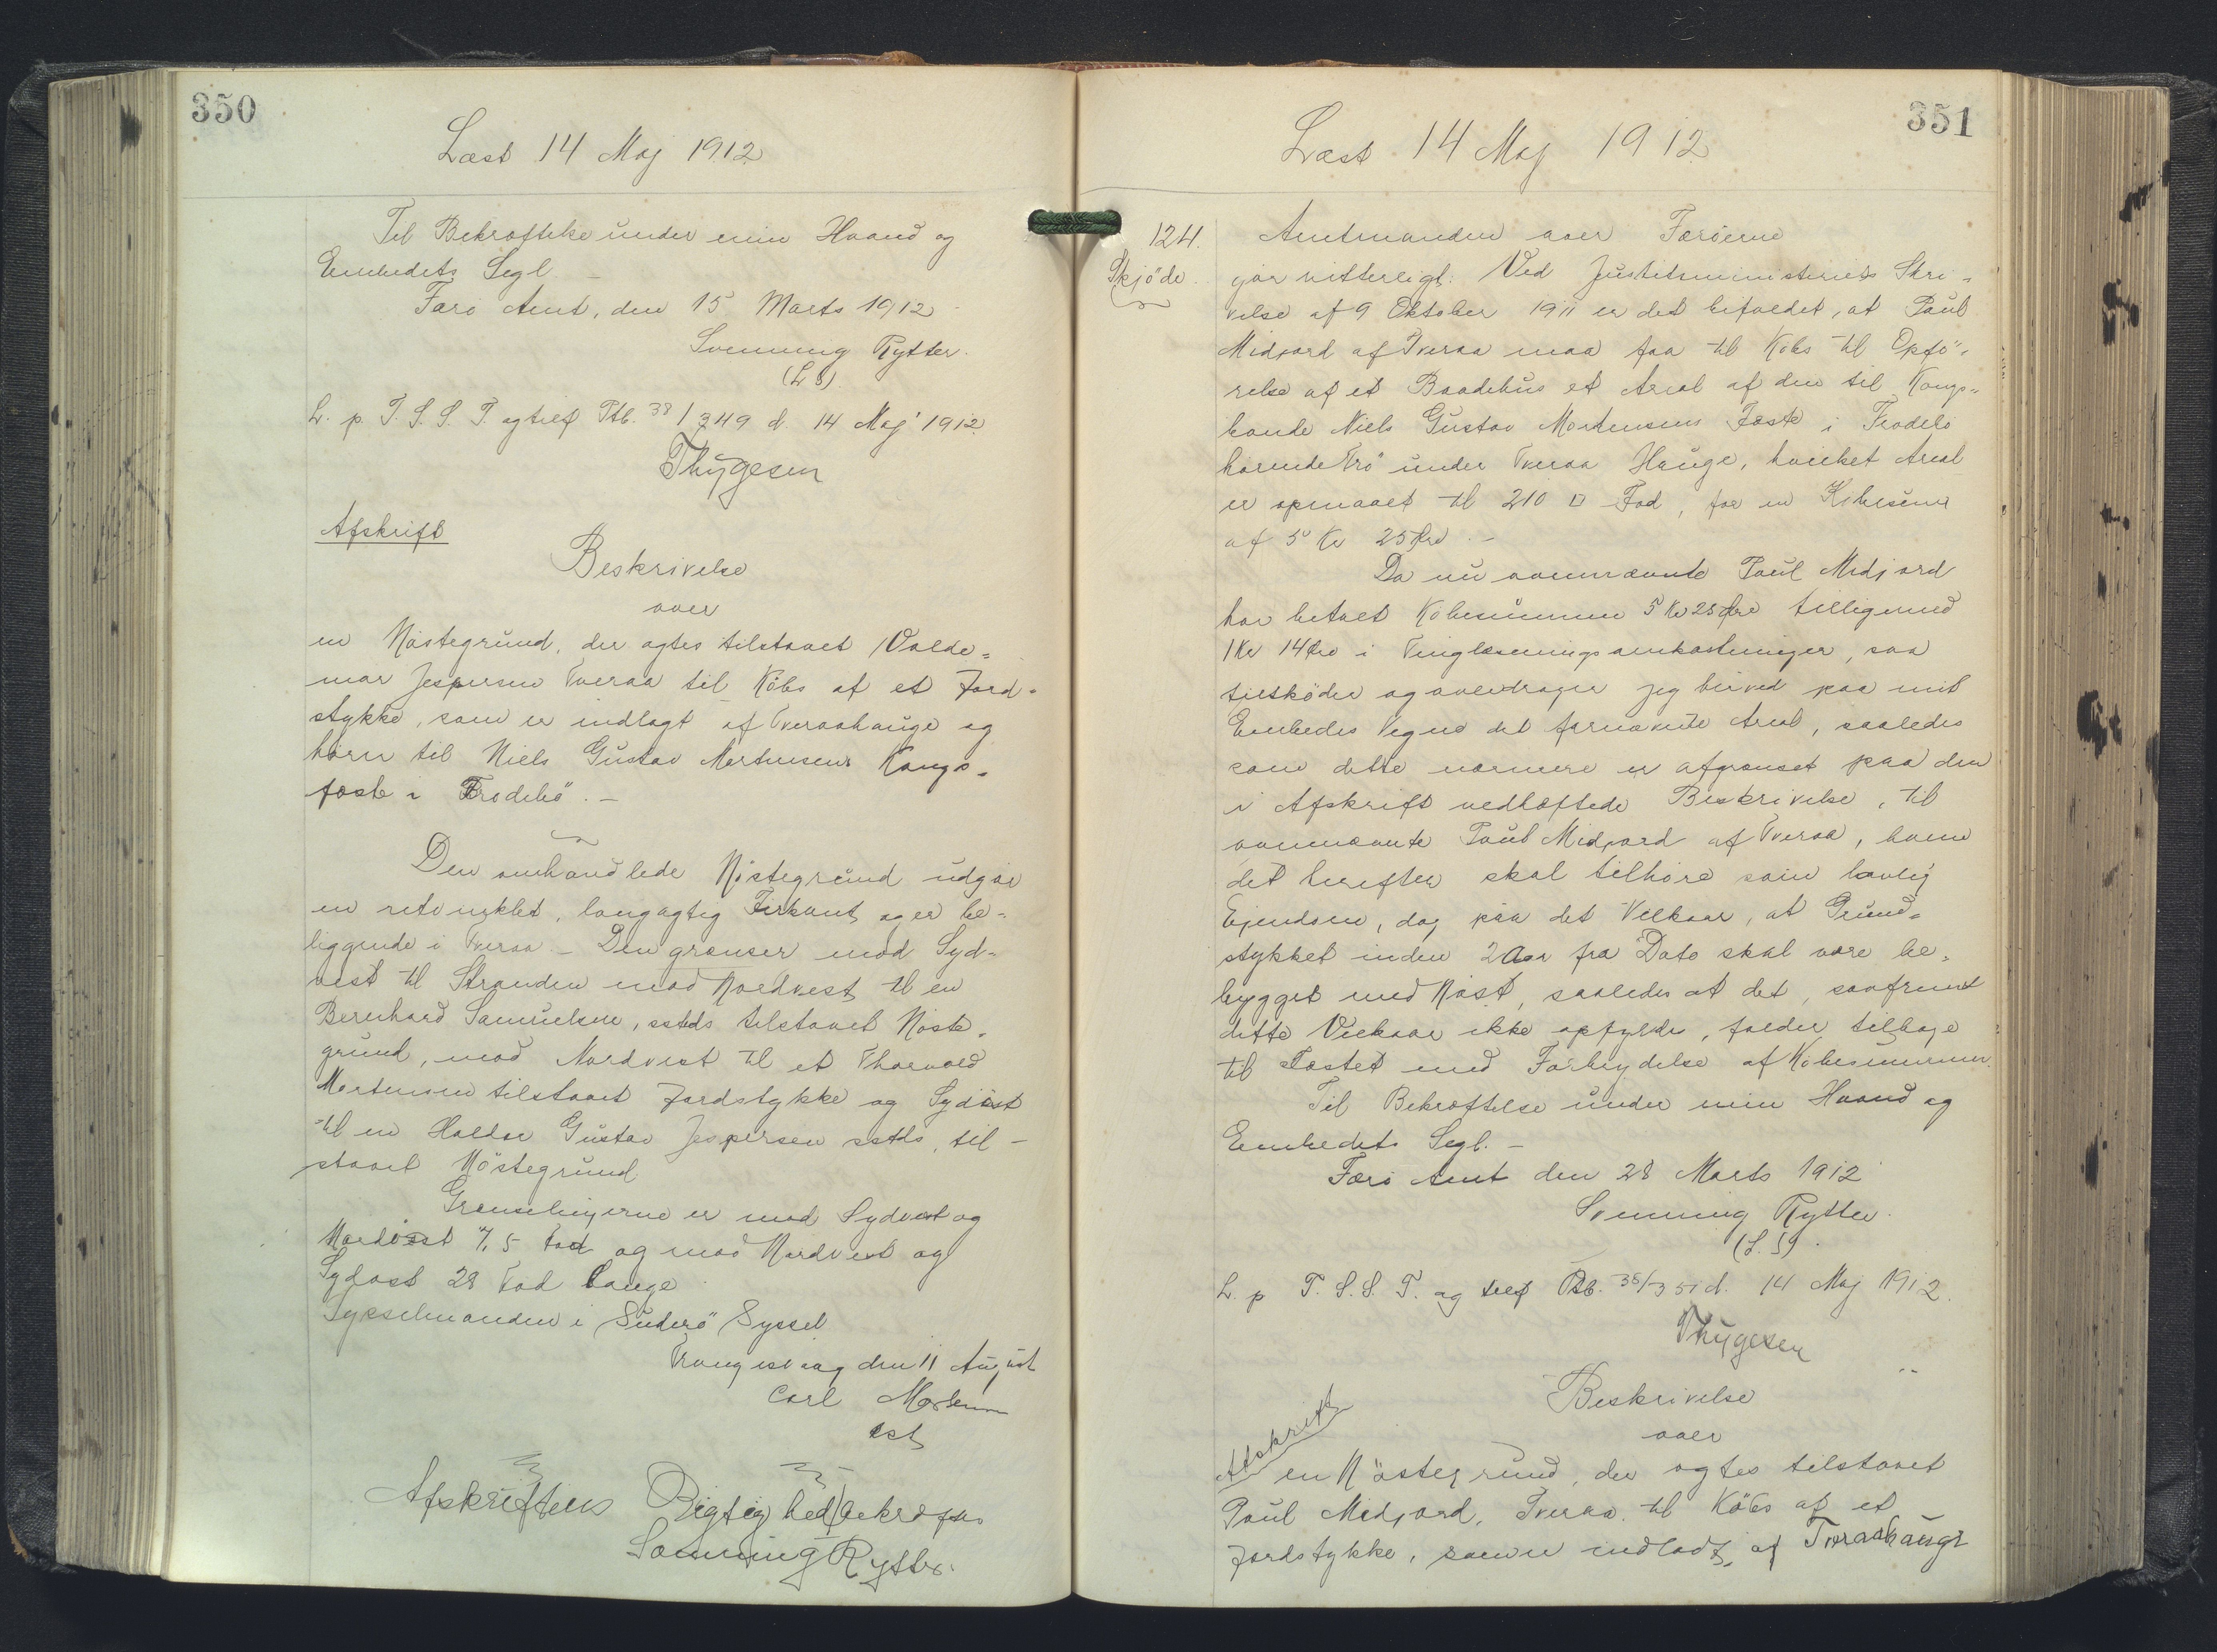 350
Læst 14 Maj 1912
Til Bekræftelse under min Haand og
Embedets Segl –
Færø Amt, den 15 Marts 1912
Svenning Rytter.
(L S)
L. p. T. S. S. T. og tilf Ptb. 38/349 d. 14 Maj 1912.
Thygesen
Afskrift
Beskrivelse
over
en Nöstegrund, der agtes tilstaaet Valde=
mar Jespersen Tveraa til Köbs af et Jord=
stykke, som er indlagt af Tveraahauge og
hörer til Niels Gustav Mortensens Kongs=
fæste i Frodebö. –
Den omhandlede Nöstegrund udgör
en retvinklet, langagtig Firkant og er be=
liggende i Tveraa. – Den grænser mod Syd=
vest til Stranden mod Nordvest til en
Bernhard Samuelsen, sstds tilstaaet Nöste=
grund, mod Nordvest til et Thorvald
Mortensen tilstaaet Jordstykke og Sydöst
til en Haldor Gustav Jespersen sstds, til–
staaet Nöstegrund
Grænselinjerne er mod Sydvest og
Nordöst 7,5 Fod og mod Nordvest og
Sydöst 28 Fod lange
Sysselmanden i Suderö Syssel
Trangisvaag den 11 August
Carl Mortensen
cst
Afskriftens Rigtighed bekræftes
Svenning Rytter.
351
Læst 14 Maj 1912
124.
Skjöde.
Amtmanden over Færöerne
gör vitterligt: Ved Justitsministeriets Skri=
velse af 9 Oktober 1911 er det bifaldet, at Poul
Midjord af Tveraa maa faa til Köbs til Opfö=
relse af et Baadehus et Areal af den til Kongs=
bonde Niels Gustav Mortensens Fæste i Frodebö
hörende Trö under Tveraa Hauge, hvilket Areal
er opmaalt til 210 □ Fod, for en Köbesum
af 5 Kr 25 Øre. –
Da nu ovennævnte Poul Midjord
har betalt Köbesummen 5 Kr 25 Øre tilligemed
1 Kr 14 Øre i Tinglæsningsomkostninger, saa
tilsköder og overdrager jeg herved paa mit
Embedes Vegne det fornævnte Areal, saaledes
som dette nærmere er afgrænset paa den
i Afskrift vedhæftede Beskrivelse, til
ovennævnte Poul Midjord af Tveraa, hvem
det herefter skal tilhöre som lovlig
Ejendom, dog paa det Vilkaar, at Grund=
stykket inden 2 Aar fra Dato skal være be=
bygget med Nöst, saaledes at det, saafremt
dette Vilkaar ikke opfyldes, falder tilbage
til Fæstet med Forbrydelse af Köbesummen.
Til Bekræftelse under min Haand og
Embedets Segl. –
Færö Amt den 28 Marts 1912
Svenning Rytter.
(L. S).
L. p T. S. S. T. og tilf Ptb. 38/351 d. 14 Maj 1912.
Thygesen
Afskrift
Beskrivelse
over
en Nöstegrund, der agtes tilstaaet
Poul Midjord, Tveraa, til Köbs af et
Jordstykke, som er indlagt af Tveraahauge